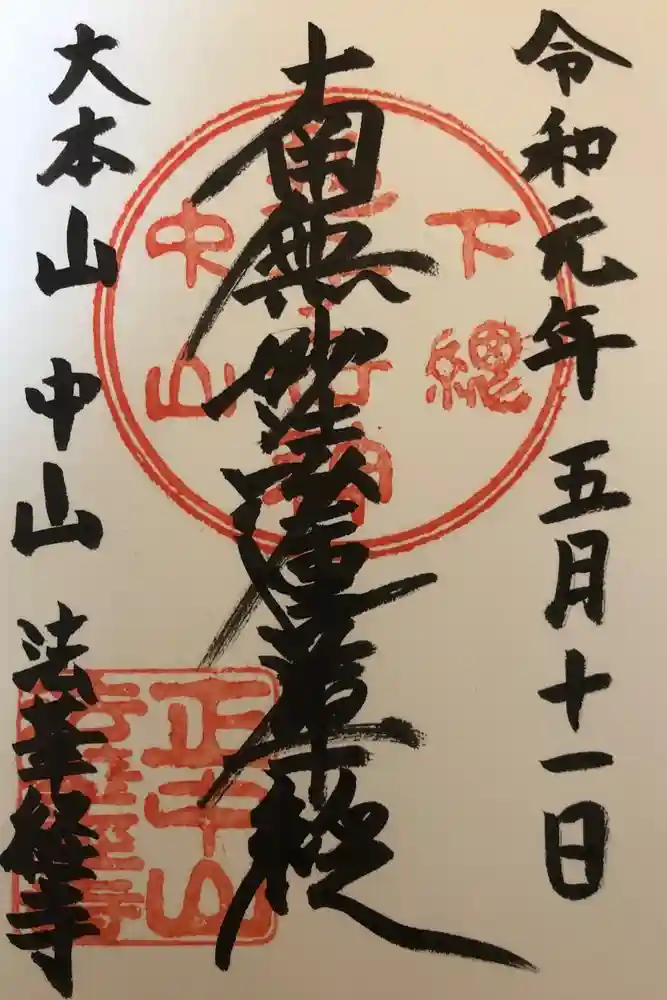 令和元年 五月十一日
南無妙法蓮華経
大本山 中山 法華経寺
下總
中山
正中山